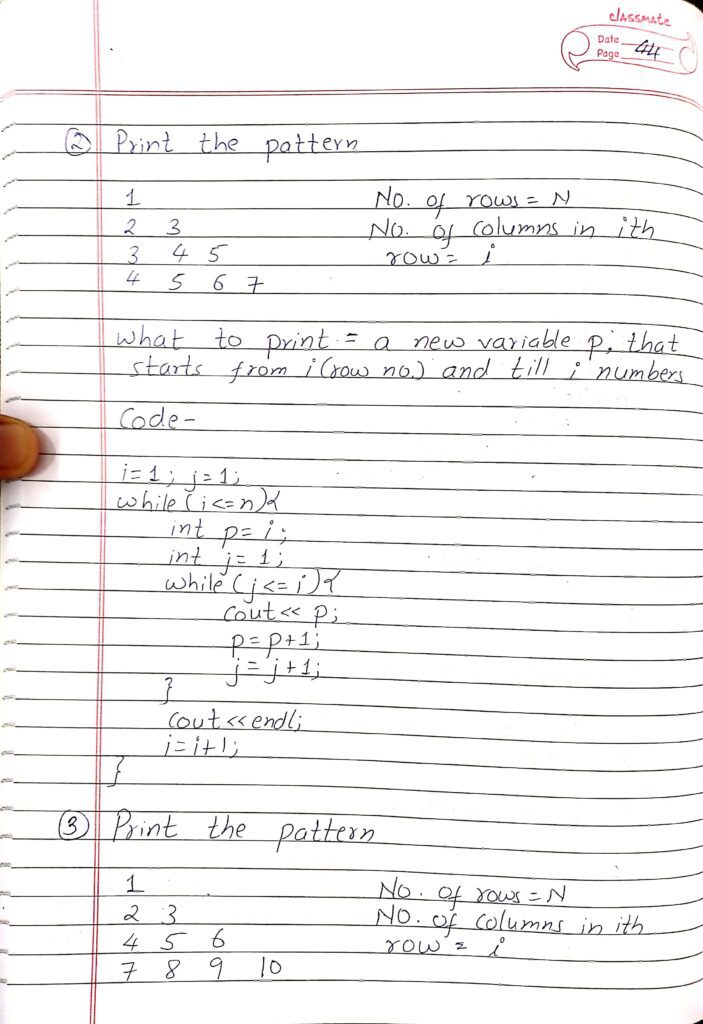 classmate
Date
Page 44
② Print the pattern
1 No. of rows = N
2 3 No. of columns in ith
3 4 5 row = i
4 5 6 7
What to print = a new variable p, that
starts from i (row no.) and till i numbers
Code-
i=1; j=1;
while (i<=n){
int p= i;
int j= 1;
while (j<=i){
cout<< p;
p=p+1;
j=j+1;
}
cout<<endl;
i=i+1;
}
③ Print the pattern
1 No. of rows = N
2 3 No. of columns in ith
4 5 6 row = i
7 8 9 10